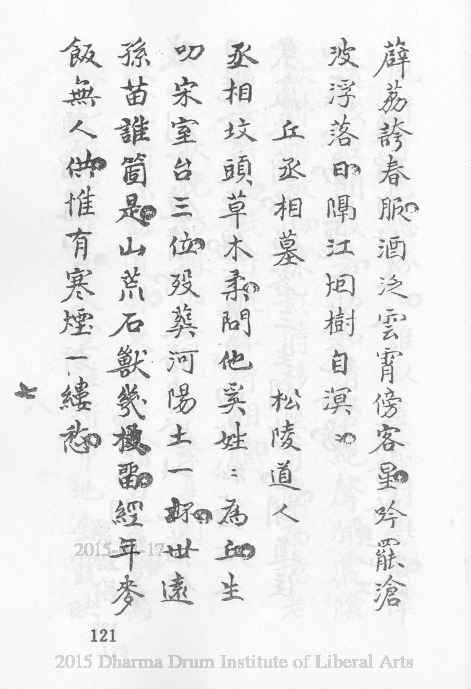 薜荔誇春脤酒泛雲霄傍客星吟罷滄
波浮落日隅江烱樹自溟
丘丞相墓 松陵道人
丞相坟頭草木柔問他奚姓：為丘生
叨宋室台三位歿葬河陽土一抔世遠
孫苗誰箇是山荒石獸幾橫畱經年麥
飯無人供惟有寒煙一縷愁
2015-17
121
2015 Dharma Drum Institute of Liberal Arts